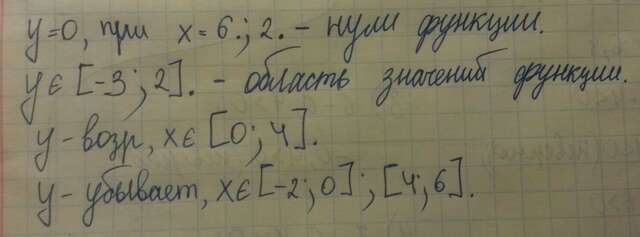 y=0, при x=6.; 2. - нули функции.
y∈[-3; 2]. - область значений функции.
y - возр, x∈[0; 4].
y - убывает, x∈[-2; 0]; [4; 6].